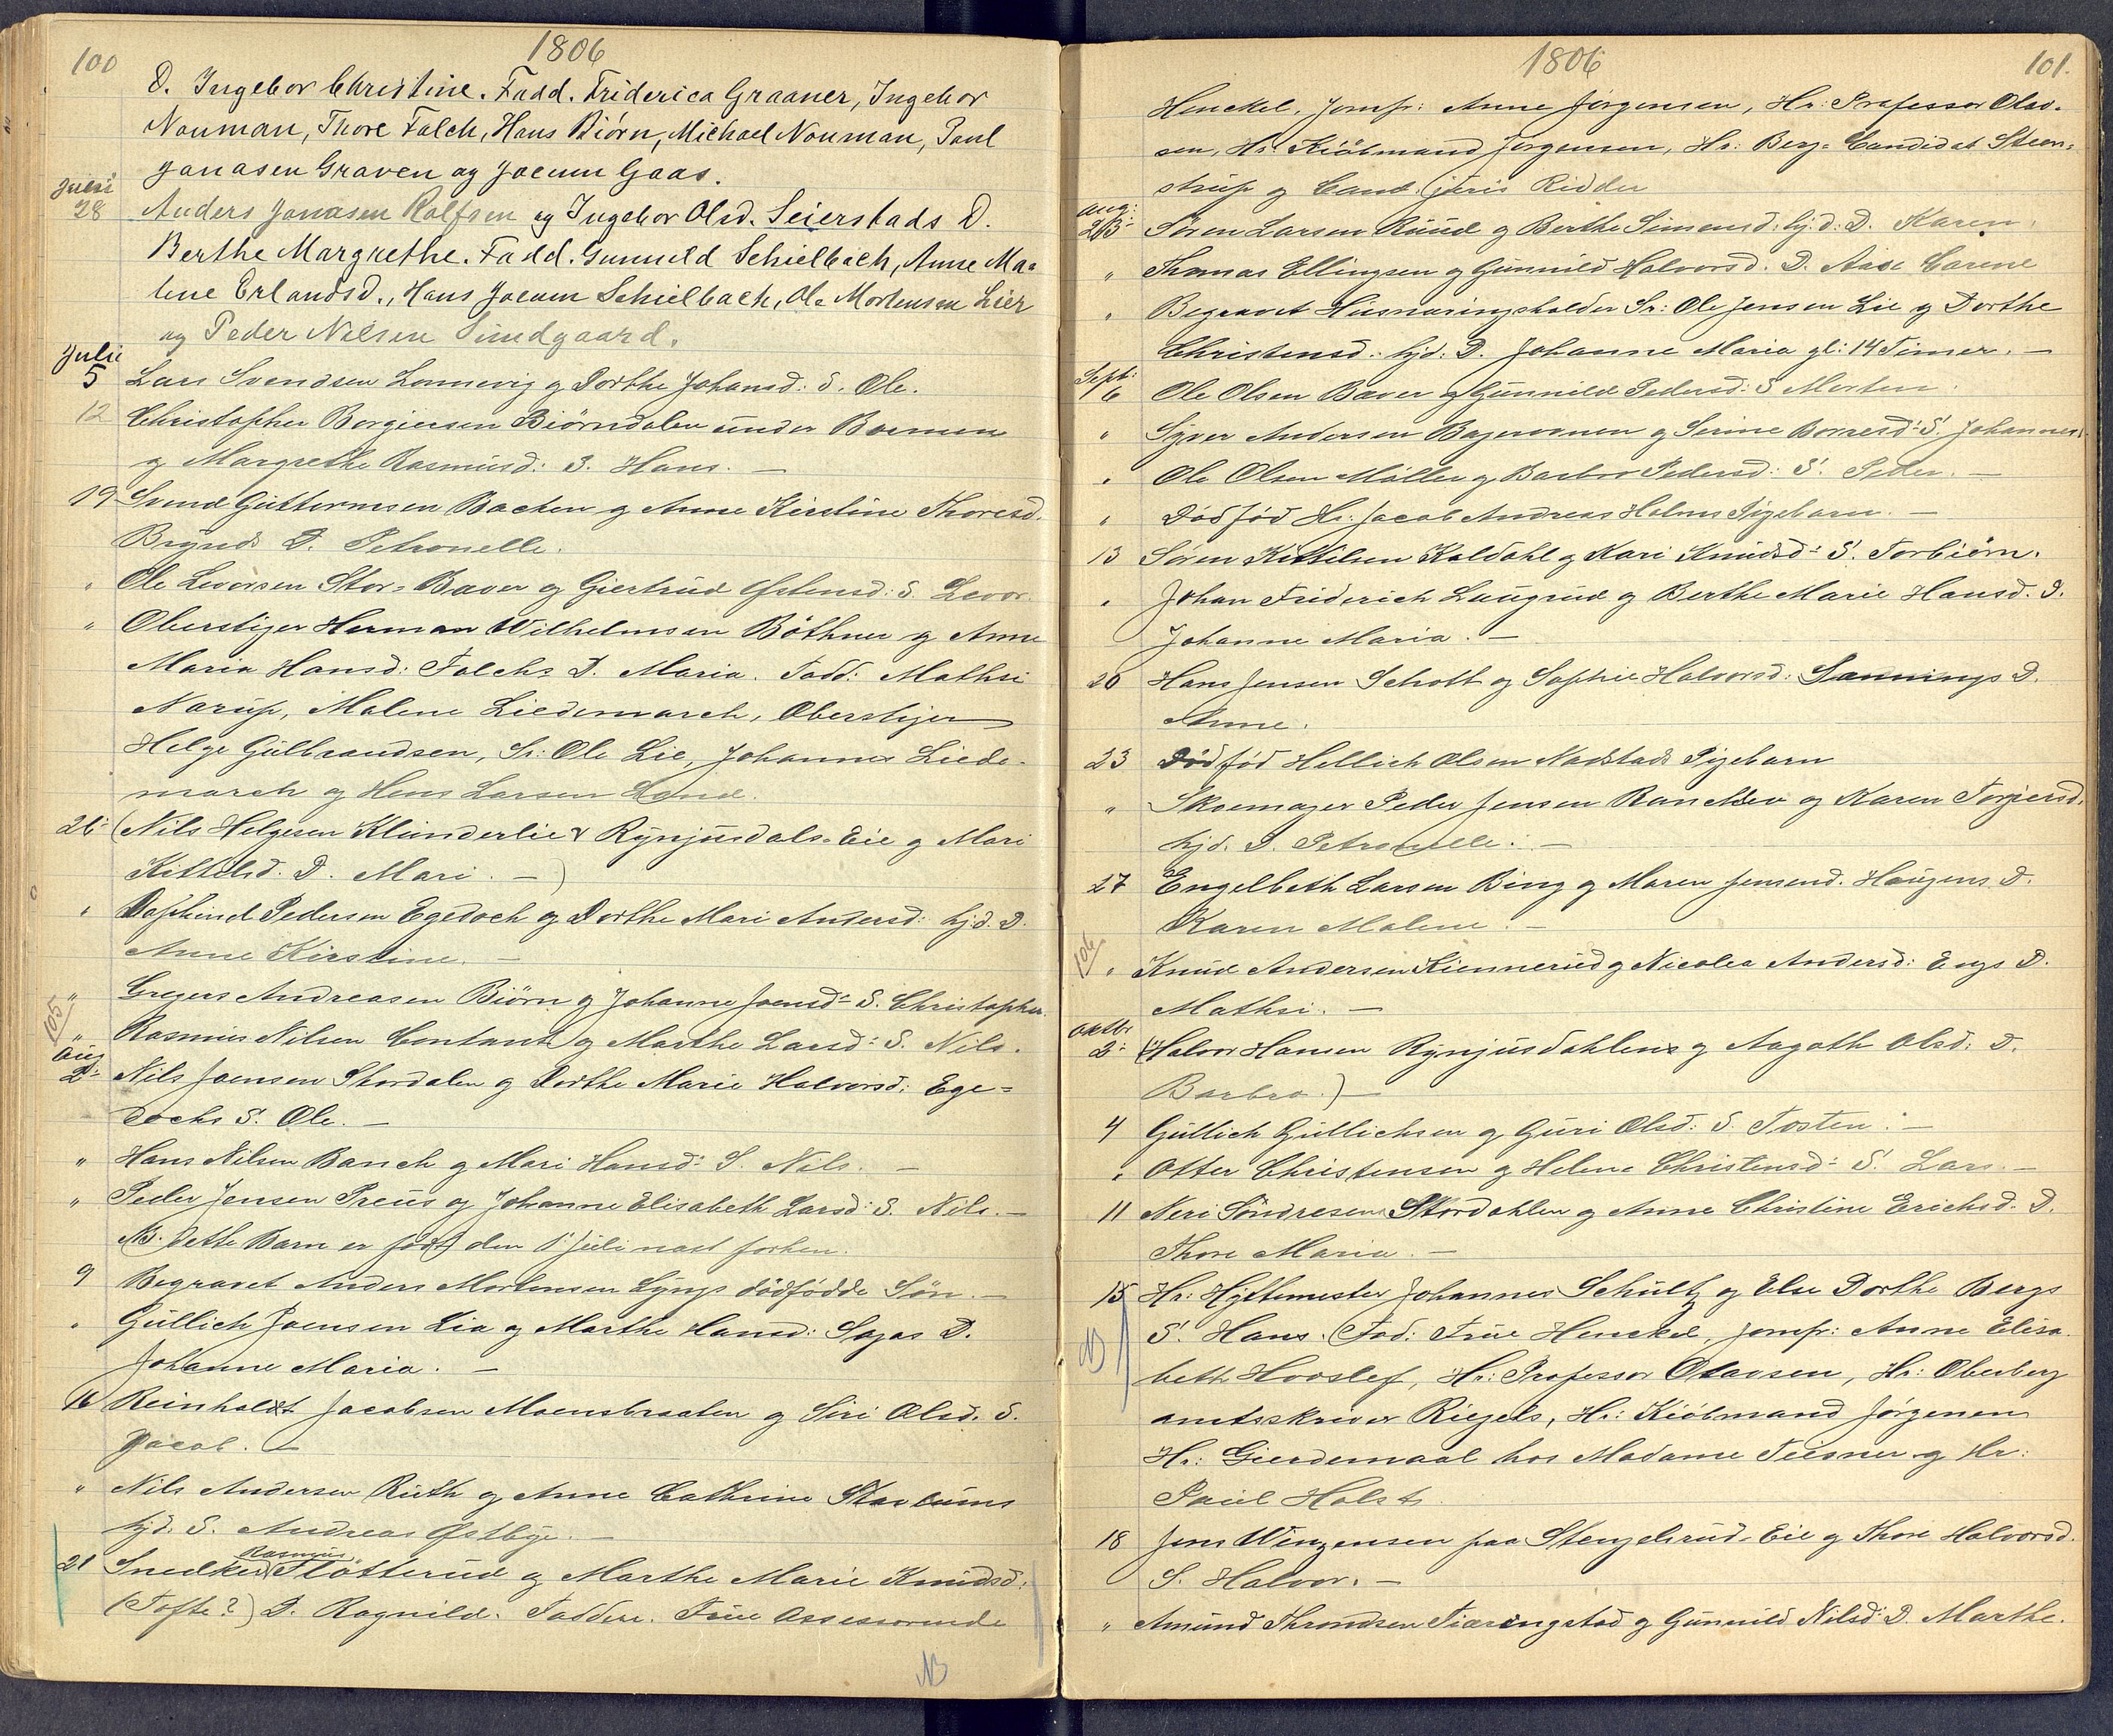 100
1806
D. Ingebor Christine. Fadd. Friderica Graaner, Ingebor
Nouman, Thore Falch, Hans Biørn, Michael Nouman, Paul
Jonasen Graven og Jocum Gaas.
Juni
28 Anders Jonasen Rolfsen og Ingebor Olsd. Seierstads D.
Berthe Margrethe. Fadd. Gunnild Schielbach, Anne Ma=
lene Erlandsd., Hans Jocum Schielbach, Ole Mortensen Lier
og Peder Nilsen Sundgaard.
Julii
5 Lars Svendsen Lonnevig og Dorthe Johansd: S. Ole.
12 Christopher Borgiersen Biörndalen under Boemen
og Margrethe Rasmusd: S. Hans. —
19 Svend Guttormsen Bachen og Anne Kirstine Thoresd.
Brynds D. Petronelle.
" Ole Levorsen Stor=Baver og Giertrud Østensd: S. Levor
" Oberstiger Herman Wilhelmsen Böthner og Anne
Maria Hansd: Falchs D. Maria. Fadd: Mathsi
Narup, Malene Liedemarch, Oberstiger
Helge Gulbrandsen, Sr: Ole Lie, Johannes Liede-
march og Hans Larsen Land.
26 (Nils Helgesen Klunderlie Rynjusdals=Eie og Mari
Kittelsd. D. Mari. —)
" Daphind Pedersen Egedoch og Dorthe Mari Andersd: hjd. D.
Anne Kirstine. —
" Gregers Andreasen Biörn og Johanne Joensd: S. Christopher.
105
" Rasmus Nilsen Contant og Marthe Larsd: S. Nils.
Aug
2 Nils Joensen Stordalen og Dorthe Marie Halvorsd: Ege=
dochs S. Ole. —
" Hans Nilsen Banch og Mari Hansd: S. Nils. —
" Peder Jensen Preus og Johanne Elisabeth Larsd: S. Nils. —
NB. Dette Barn er født den 1' Juli næst forhen.
9 Begravet Anders Mortensen Lyngs dödfödde Sön. —
" Gullich Joensen Lia og Marthe Hansd: Sagas D.
Johanne Maria. —
16 Reinholdt Jacobsen Moensbraaten og Siri Olsd. S.
Jacob. —
" Nils Andersen Ruth og Anne Cathrine Starbums
hjd. S. Andreas Østbye. —
Rasmus
21 Snedker Flötterud og Marthe Marie Knudsd.
(Tofte?) D. Ragnild. Faddere. Frue Assessorinde
NB
1806
101.
Henckel, Jomfr: Anne Jörgensen, Hr: Professor Olav=
sen, Hr: Kiöbmand Jörgensen, Hr: Berg=Candidat Steen=
strup og Cand. juris Ridder
Aug:
23 Sören Larsen Ruud og Berthe Simensd. hj.d: D. Karen.
" Thomas Ellingsen og Gunnild Halvorsd. D. Aase Carene
" Begravet Husnæringsholder Sr: Ole Jensen Lie og Dorthe
Christensd. hjd: D. Johanne Maria gl: 14 Timer. —
Sept:
6 Ole Olsen Baver og Gunnild Pedersd: S Morten.
" Syver Andersen Bagerovnen og Serine Borresd: S. Johannes.
" Ole Olsen Möller og Barbro Pedersd: S. Peder. —
" Dödfød Hr: Jacob Andreas Holms Pigebarn. —
13 Sören Kittilsen Koldahl og Kari Knudsd: S. Torbiörn.
" Johan Friderich Laugrud og Berthe Marie Hansd. D.
Johanne Maria. —
20 Hans Jensen Schott og Sophie Halvorsd: Sannings D.
Anne.
23 Dödfød Hellich Olsen Nadstads Pigebarn
" Skoemager Peder Jensen Ranchen og Karen Torgersd.
hjd. D. Petronelle. —
27 Engelbeth Larsen Bing og Maren Jensend. Haugens D.
Karen Malene. —
106
" Knud Andersen Kiennerud og Nicolea Andersd: Engs D.
Mathsi. —
Octbr
2 (Halvor Hansen Rynjusdahlens og Aagoth Olsd: D.
Barbro.) —
4 Gullich Gullichsen og Guri Olsd: S. Tosten. —
" Otter Christensen og Helene Christensd: S. Lars. —
11 Neri Söndresen Stordahlen og Anne Christine Erichsd. D.
Thore Maria. —
15 Hr: Hyttemester Johannes Schultz og Else Dorthe Bergs
NB
S. Hans. Fad: Frue Henckel, Jomfr: Anne Elisa
beth Hooslef, Hr: Professor Olavsen, Hr: Oberberg
amtsskriver Riegels, Hr: Kiöbmand Jörgensen
Hr: Gierdemaal hos Madame Teisner og Hr:
Paul Holst.
18 Jens Wingensen paa Stengelsrud=Eie og Thore Halvorsd.
S. Halvor. —
" Amund Throndsen Tiaringstad og Gunnild Nilsd: D. Marthe.